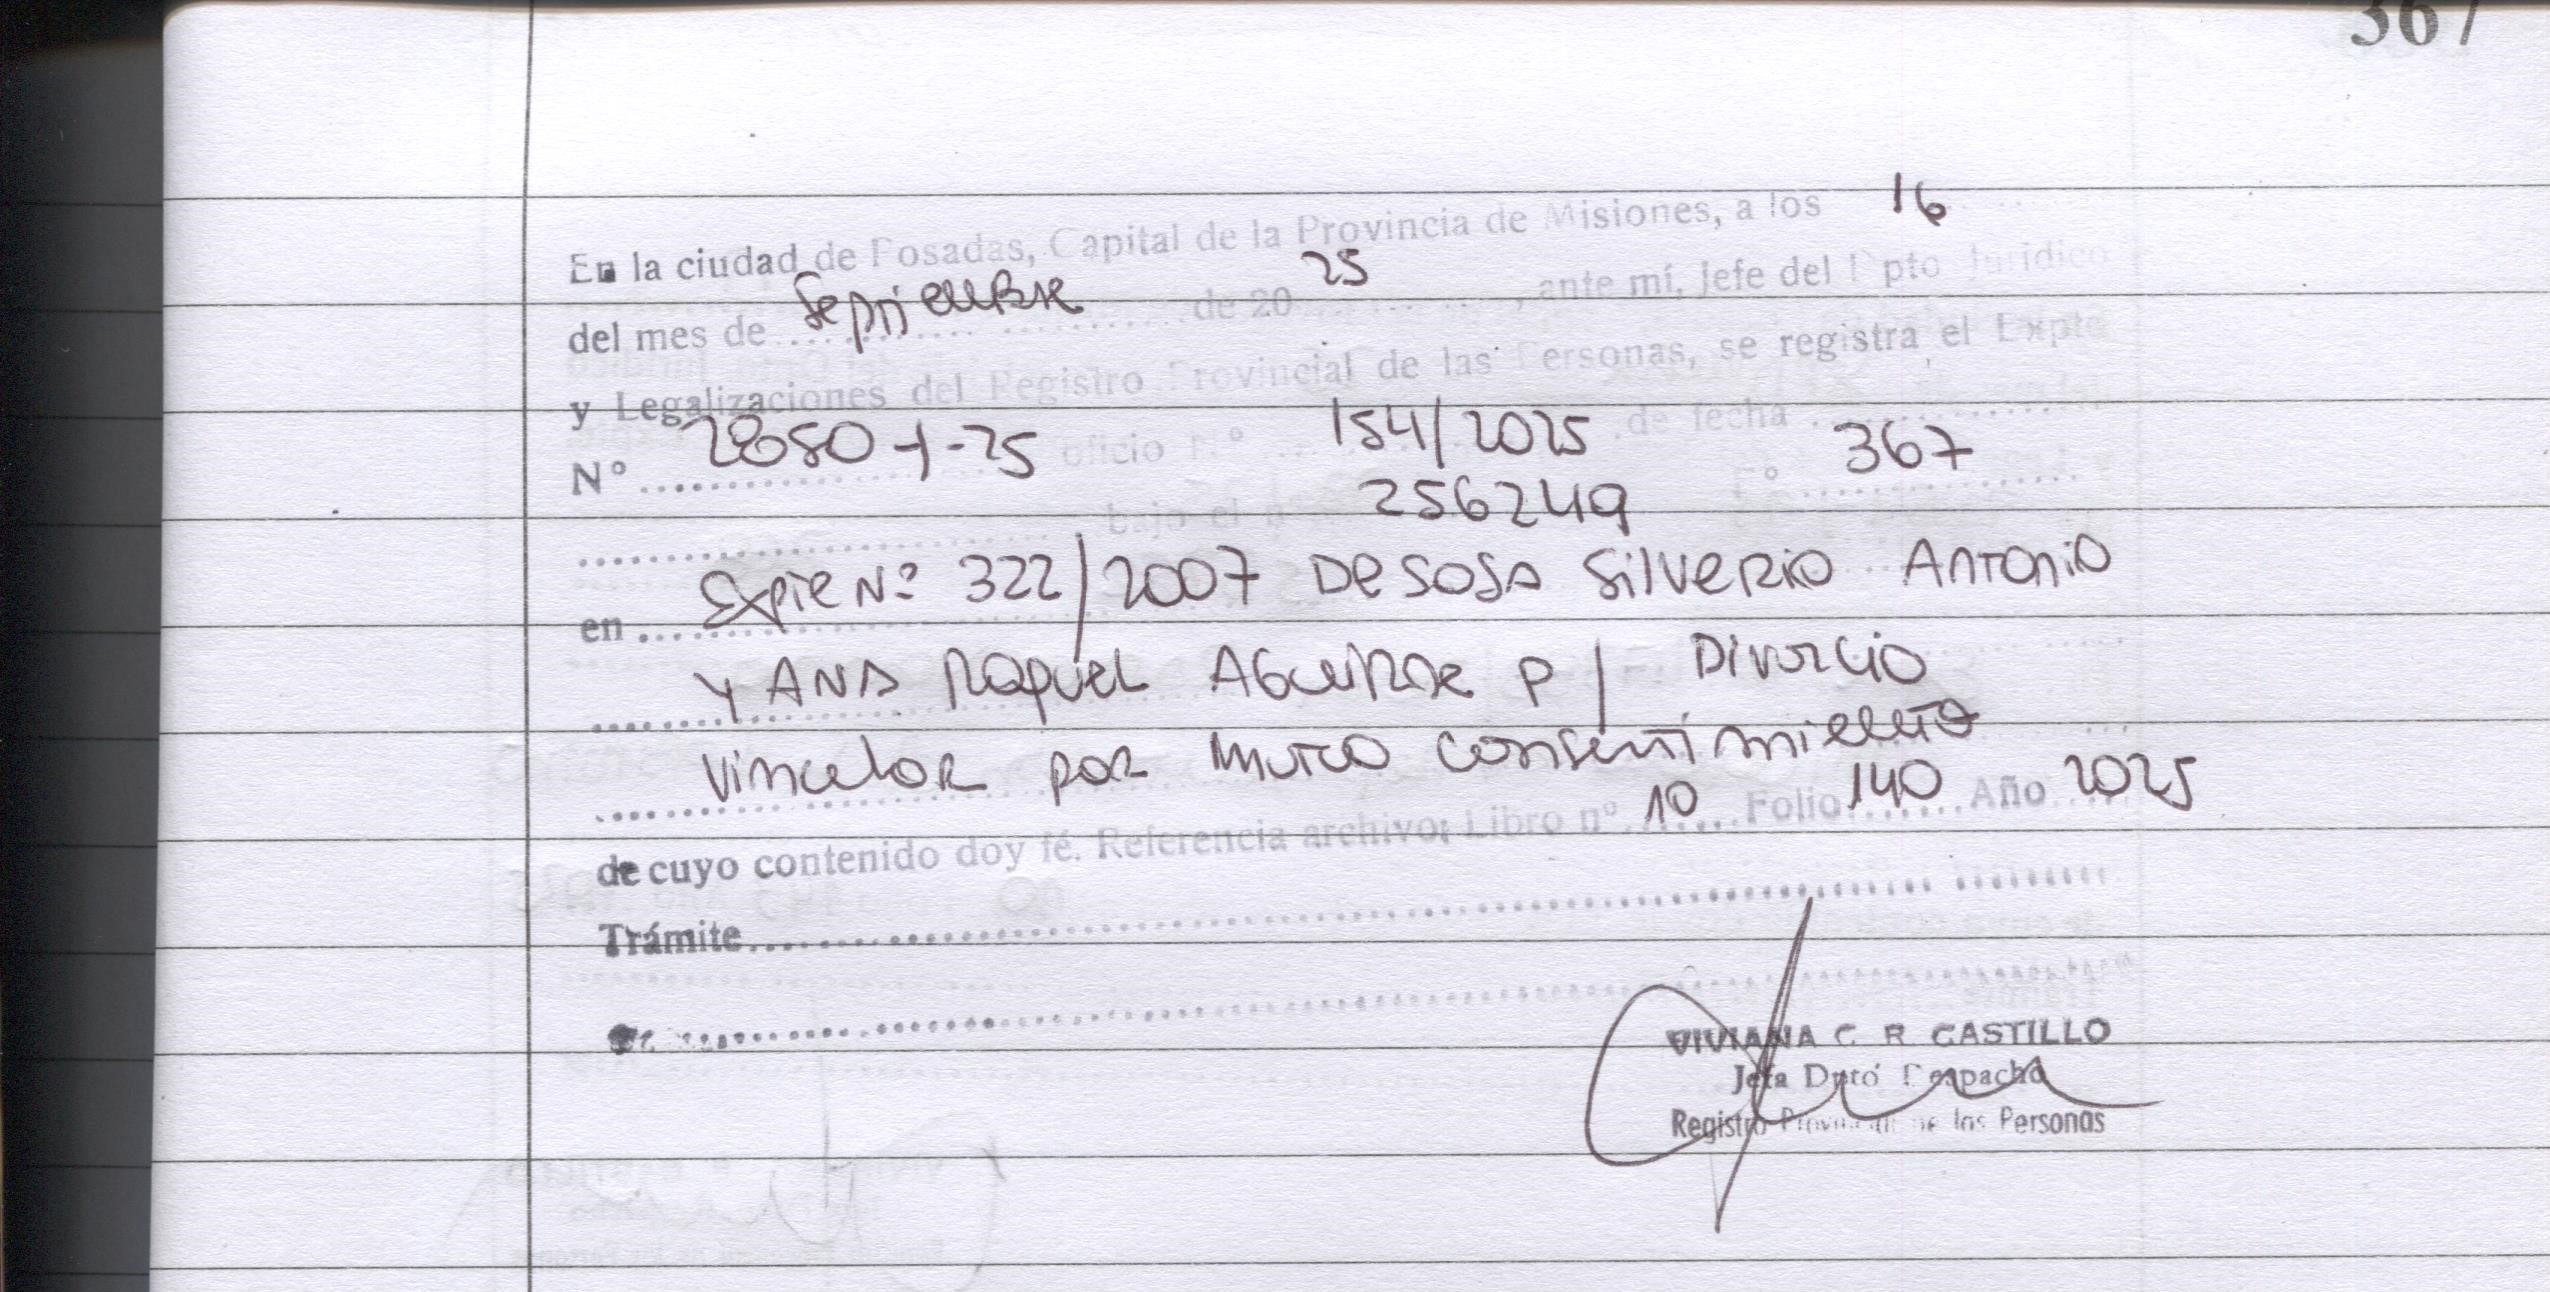 367
En la ciudad de Posadas, Capital de la Provincia de Misiones, a los 16
del mes de Septiembre de 20 25, ante mí, Jefe del Dpto Jurídico
y Legalizaciones del Registro Provincial de las Personas, se registra el Expte
Nº 28050-1-25 oficio Nº 154/2025 de fecha
bajo el 256249 Fº 367
en Expte Nº 322/2007 De Sosa Silverio Antonio
y Ana Raquel Aguirre p/ Divorcio
Vincular por mutuo consentimiento
de cuyo contenido doy fé. Referencia archivo; Libro nº 10 Folio 140 Año 2025
Trámite
VIVIANA C R CASTILLO
Jefa Dpto Despacho
Registro Provincial de las Personas